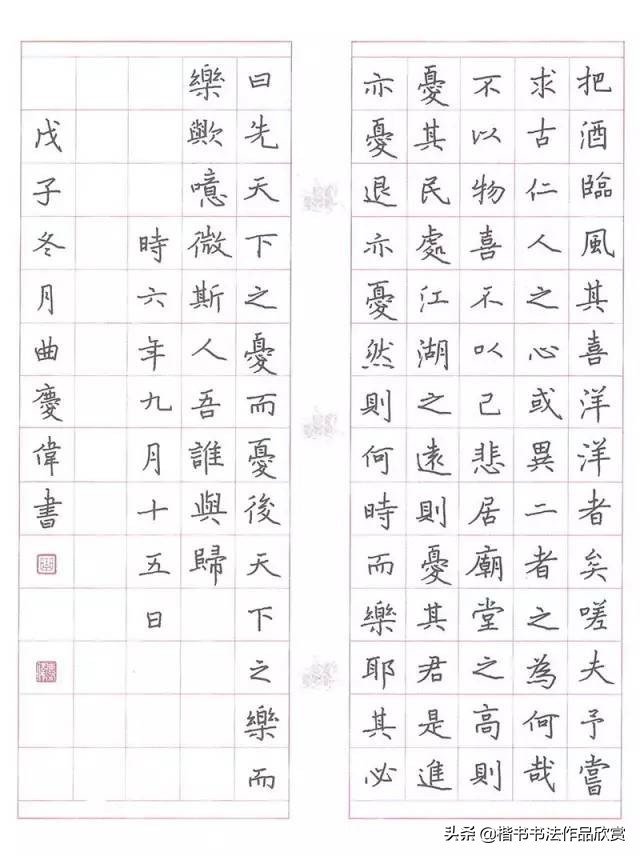 把酒臨風其喜洋洋者矣嗟夫予嘗
求古仁人之心或異二者之為何哉
不以物喜不以己悲居廟堂之高則
憂其民處江湖之遠則憂其君是進
亦憂退亦憂然則何時而樂耶其必
曰先天下之憂而憂後天下之樂而
樂歟噫微斯人吾誰與歸
時六年九月十五日
戊子冬月曲慶偉書
头条 @楷书书法作品欣赏